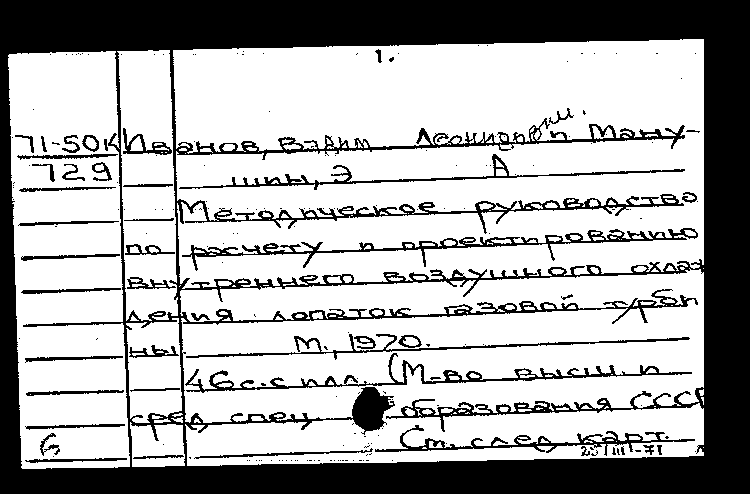 1.
71-50К Иванов, Вадим Леонидович. и Ману-
729 шин, Э А
Методическое руководство
по расчету и проектированию
внутреннего воздушного охлаж
дения лопаток газовой турби
ны М., 1970.
46 с. с илл. (М-во высш. и
сред. спец. образования СССР
См. след. карт.
б 25/III-71